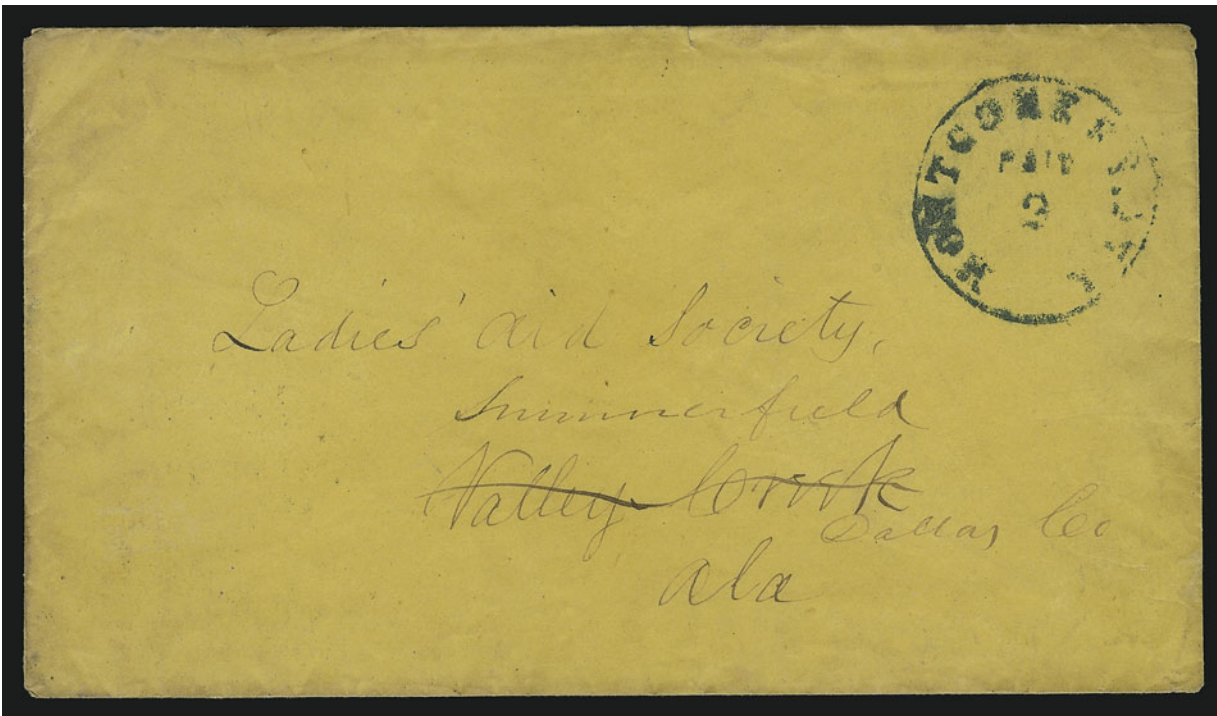 MONTGOMERY, ALA
PAID
2
Ladies' Aid Society,
Summerfield
Valley Creek
Dallas Co
Ala